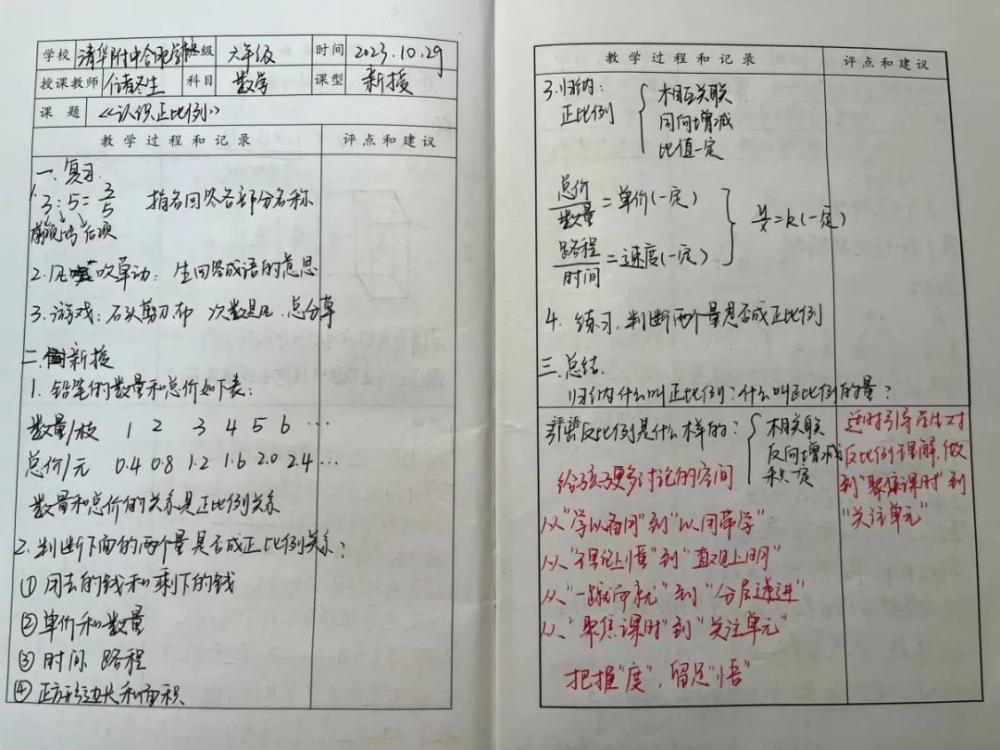 学校 清华附中合肥学校 班级 六年级 时间 2023.10.29
授课教师 科目 数学 课型 新授
课题 《认识正比例》
教学过程和记录 评点和建议
一.复习.
1. 3:5=3/5 指名回答各部分名称
前项 比号 后项
2.风吹草动:生回答成语的意思
3.游戏:石头剪刀布 次数是几.总分享
二.新授
1.铅笔的数量和总价如下表:
数量/枝 1 2 3 4 5 6 …
总价/元 0.4 0.8 1.2 1.6 2.0 2.4 …
数量和总价的关系是正比例关系
2.判断下面的两个量是否成正比例关系?
①用去的钱和剩下的钱
②单价和数量
③时间 路程
④正方形边长和面积
教学过程和记录 评点和建议
3.归纳:
正比例
相互关联
同向增减
比值一定
总价/数量=单价(一定)
路程/时间=速度(一定)
y/x=k(一定)
4.练习.判断两个量是否成正比例
三.总结.
归纳什么叫正比例?什么叫正比例的量?
反比例是什么样的?
相关联
反向增减
积一定
给孩子更多讨论的空间
从"学以致用"到"以用带学"
从"理论上懂"到"直观上明"
从"一蹴而就"到"分层递进"
从"聚焦课时"到"关注单元"
把握"度",留足"悟"
适时引导学生对
反比例理解.做
到"聚焦课时"到
"关注单元"